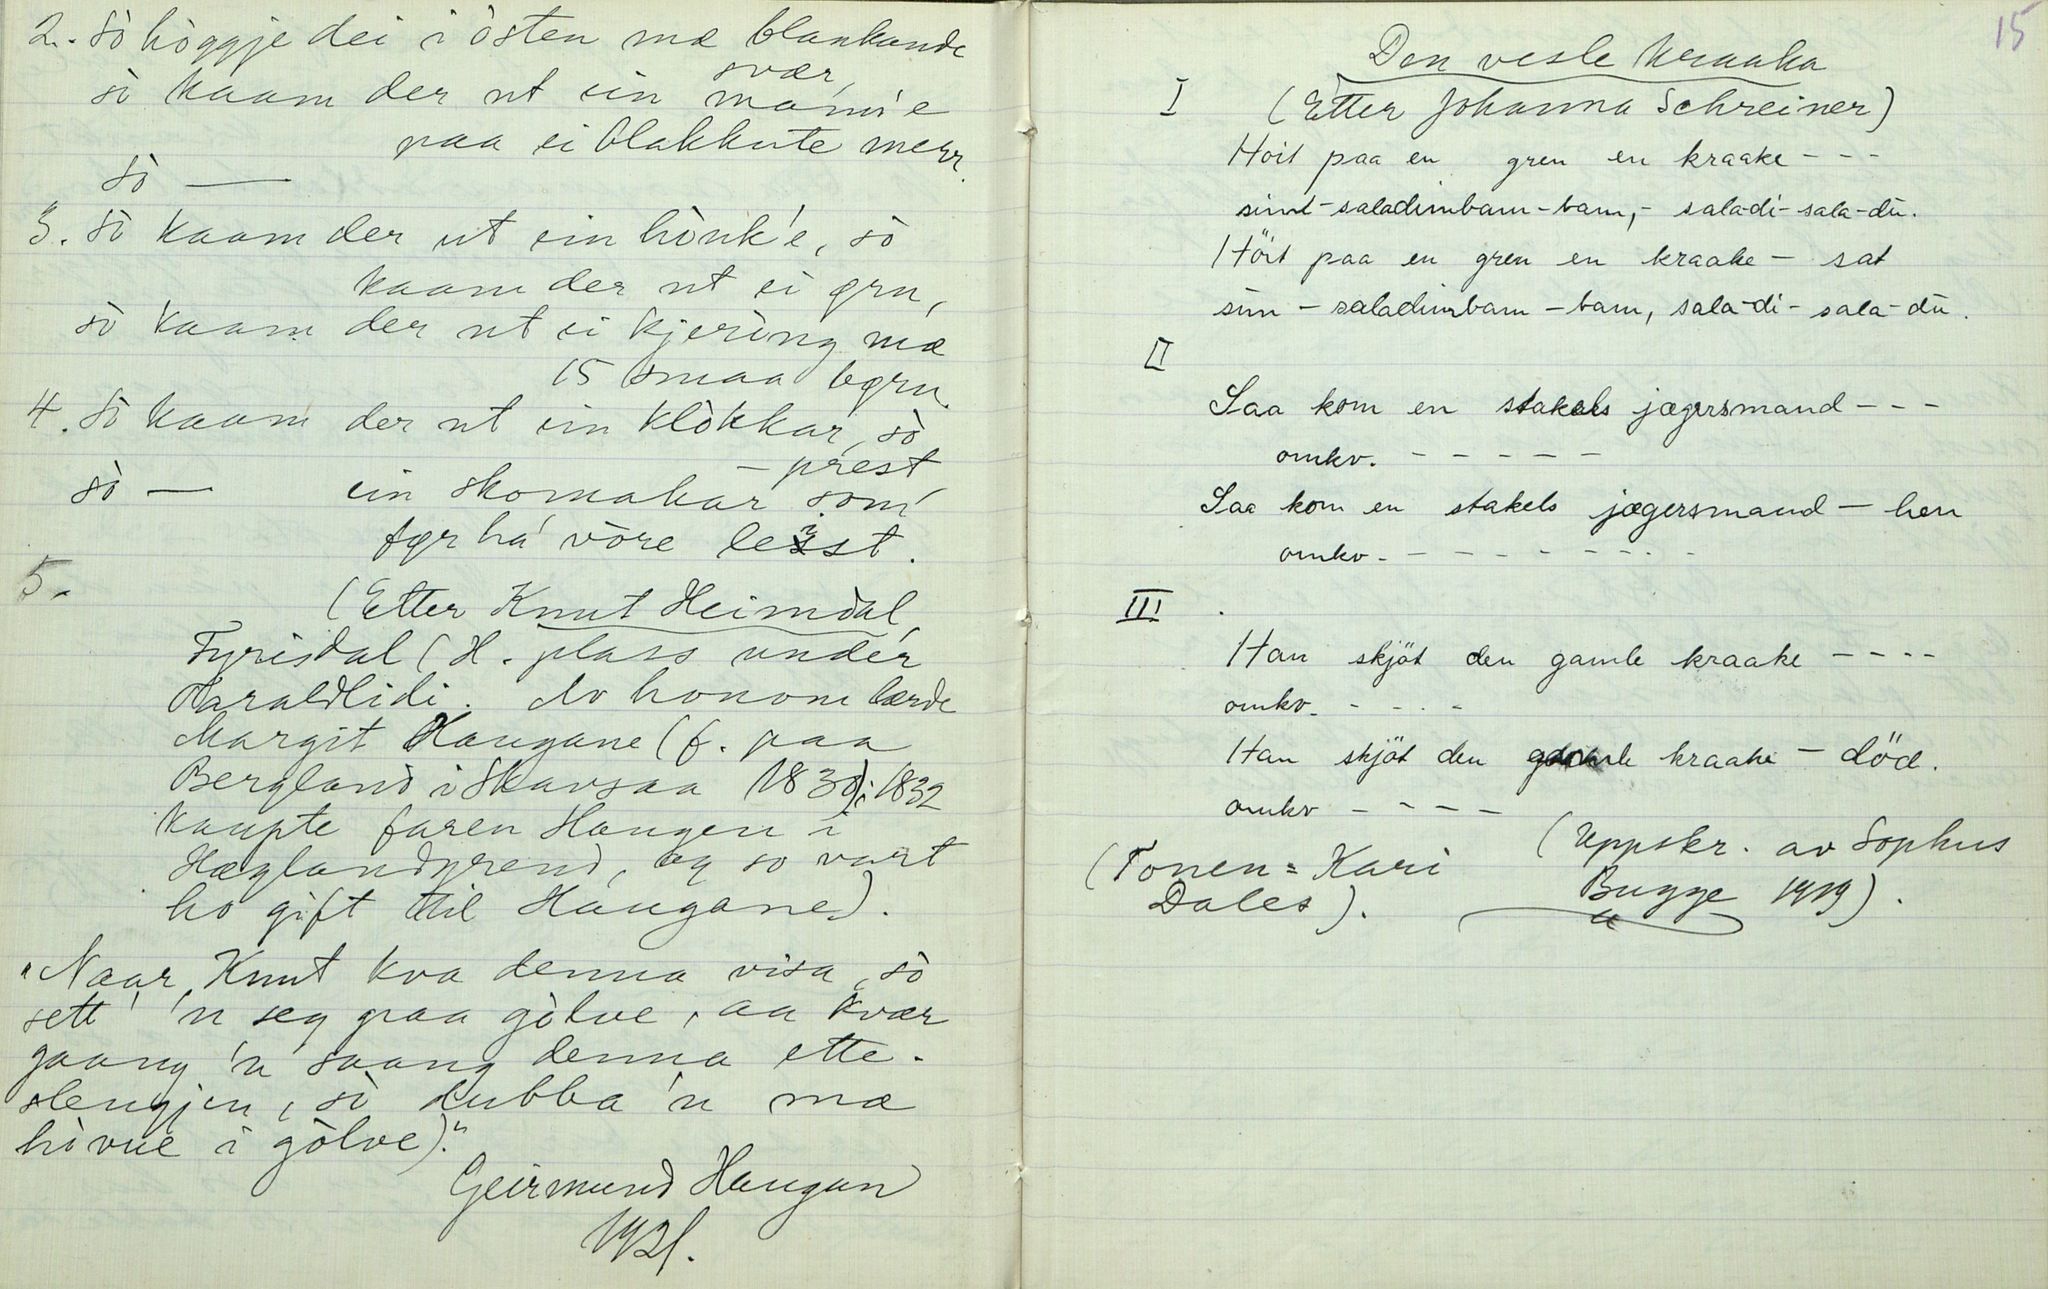 2. Sò hòggje dei i òsten mæ blankande
svær,
sò kaam der ut ein mann'e
paa ei blakkute merr.
Sò —
3. Sò kaam der ut ein hònk'e, sò
kaam der ut ei gru,
sò kaam der ut ei kjering mæ
15 smaa bgru.
4. Sò kaam der ut ein klòkkar, sò
— prest,
sò — ein skomakar som
fyr ha' vòre lesst.
5.
(Etter Knut Heimdal,
Fyrisdal (H. plass under
Haraldlidi. Av honom lærde
Margit Haugane (f. paa
Bergland i Skavsaa 1830); 1832
kaupte faren Haugen i
Hæglandgrend, og so vart
ho gift til Haugane).
"Naar Knut kva denna visa, sò
sett' 'n seg paa gòlve, aa kvær
gaang 'n saang denna ette-
slengjen, sò dubba 'n mæ
hòvue i gòlve)."
Geirmund Haugen
1921.
15
Den vesle kraaka
I (Etter Johanna Schreiner)
Høit paa en gren en kraake - - -
simt-saladimbam-bam, - sala-di-sala-dü.
Höit paa en gren en kraake - sat
sim - saladimbam - bam, sala-di- sala-dü.
II
Saa kom en stakels jægersmand - - -
omkv. - - - - -
Saa kom en stakels jægersmand - hen
omkv. - - - - - - - -
III
Han skjöt den gamle kraake - - - -
omkv. - - - -
Han skjöt den gamle kraake - död.
omkv - - - -
(Uppskr. av Sophus
Bugge 1919).
(Tonen = Kari
Dales).